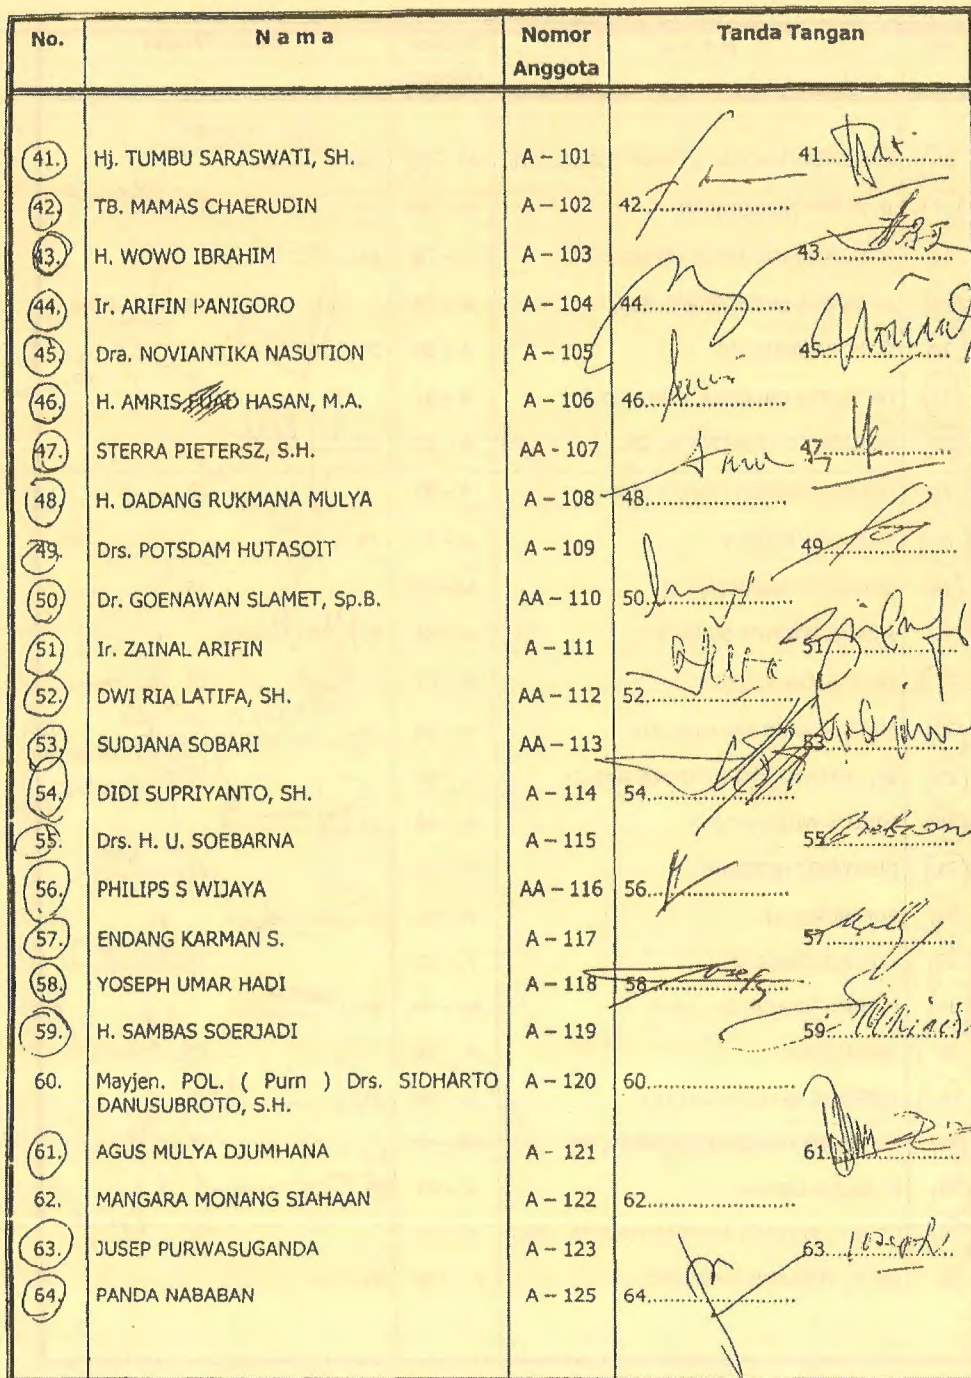 No. Nama Nomor Anggota Tanda Tangan
41. Hj. TUMBU SARASWATI, SH. A – 101 41..............
42. TB. MAMAS CHAERUDIN A – 102 42..............
43. H. WOWO IBRAHIM A – 103 43..............
44. Ir. ARIFIN PANIGORO A – 104 44..............
45. Dra. NOVIANTIKA NASUTION A – 105 45..............
46. H. AMRIS FUAD HASAN, M.A. A – 106 46..............
47. STERRA PIETERSZ, S.H. AA - 107 47..............
48. H. DADANG RUKMANA MULYA A – 108 48..............
49. Drs. POTSDAM HUTASOIT A – 109 49..............
50. Dr. GOENAWAN SLAMET, Sp.B. AA – 110 50..............
51. Ir. ZAINAL ARIFIN A – 111 51..............
52. DWI RIA LATIFA, SH. AA – 112 52..............
53. SUDJANA SOBARI AA – 113 53..............
54. DIDI SUPRIYANTO, SH. A – 114 54..............
55. Drs. H. U. SOEBARNA A – 115 55..............
56. PHILIPS S WIJAYA AA – 116 56..............
57. ENDANG KARMAN S. A – 117 57..............
58. YOSEPH UMAR HADI A – 118 58..............
59. H. SAMBAS SOERJADI A – 119 59..............
60. Mayjen. POL. ( Purn ) Drs. SIDHARTO A – 120 60..............
DANUSUBROTO, S.H.
61. AGUS MULYA DJUMHANA A - 121 61..............
62. MANGARA MONANG SIAHAAN A – 122 62..............
63. JUSEP PURWASUGANDA A – 123 63..............
64. PANDA NABABAN A – 125 64..............